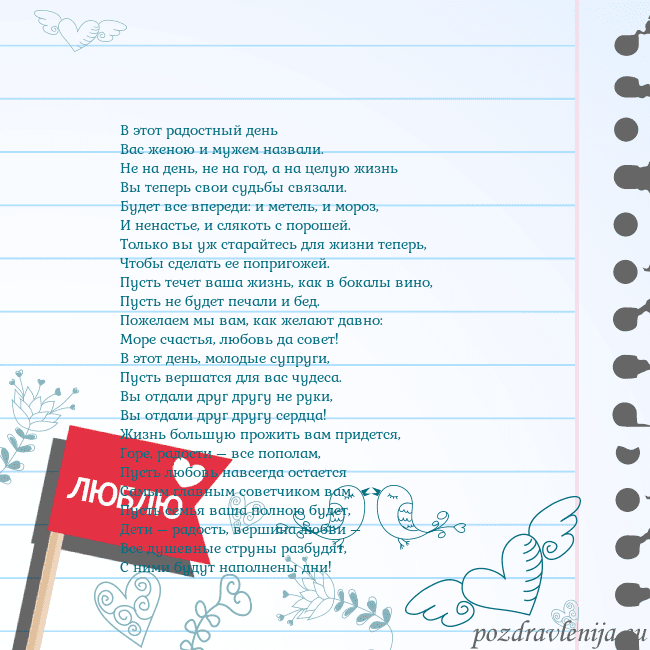 В этот радостный день
Вас женою и мужем назвали.
Не на день, не на год, а на целую жизнь
Вы теперь свои судьбы связали.
Будет все впереди: и метель, и мороз,
И ненастье, и слякоть с порошей.
Только вы уж старайтесь для жизни теперь,
Чтобы сделать ее попригожей.
Пусть течет ваша жизнь, как в бокалы вино,
Пусть не будет печали и бед.
Пожелаем мы вам, как желают давно:
Море счастья, любовь да совет!
В этот день, молодые супруги,
Пусть вершатся для вас чудеса.
Вы отдали друг другу не руки,
Вы отдали друг другу сердца!
Жизнь большую прожить вам придется,
Горе, радости — все пополам,
Пусть любовь навсегда остается
Самым главным советчиком вам.
Пусть семья ваша полною будет,
Дети — радость, вершина любви —
Все душевные струны разбудят,
С ними будут наполнены дни!
ЛЮБЛЮ
pozdravlenija.eu